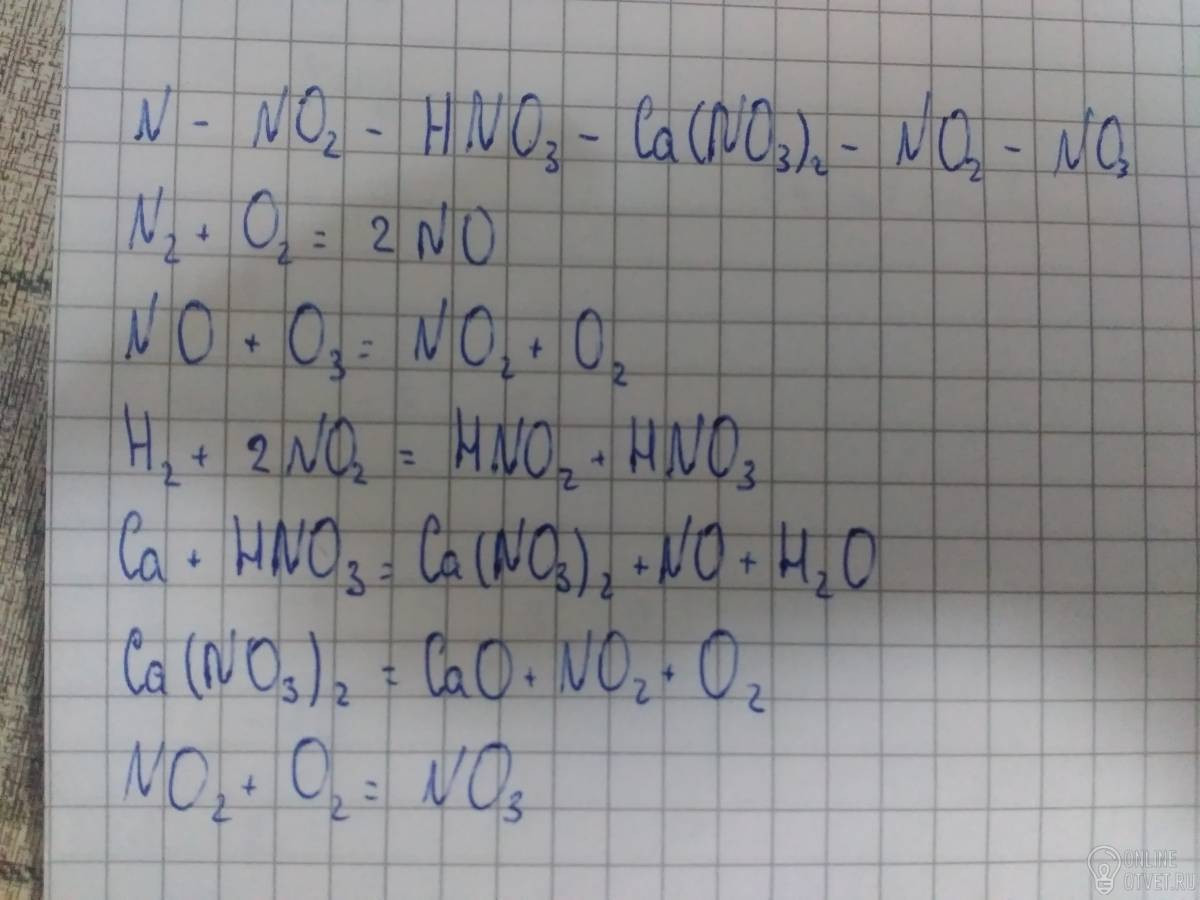 N - NO₂ - HNO₃ - Ca(NO₃)₂ - NO₂ - NO₃
N₂ + O₂ = 2NO
NO + O₃ = NO₂ + O₂
H₂ + 2NO₂ = HNO₂ + HNO₃
Ca + HNO₃ = Ca(NO₃)₂ + NO + H₂O
Ca(NO₃)₂ = CaO + NO₂ + O₂
NO₂ + O₂ = NO₃
ONLINE
OTVET.RU